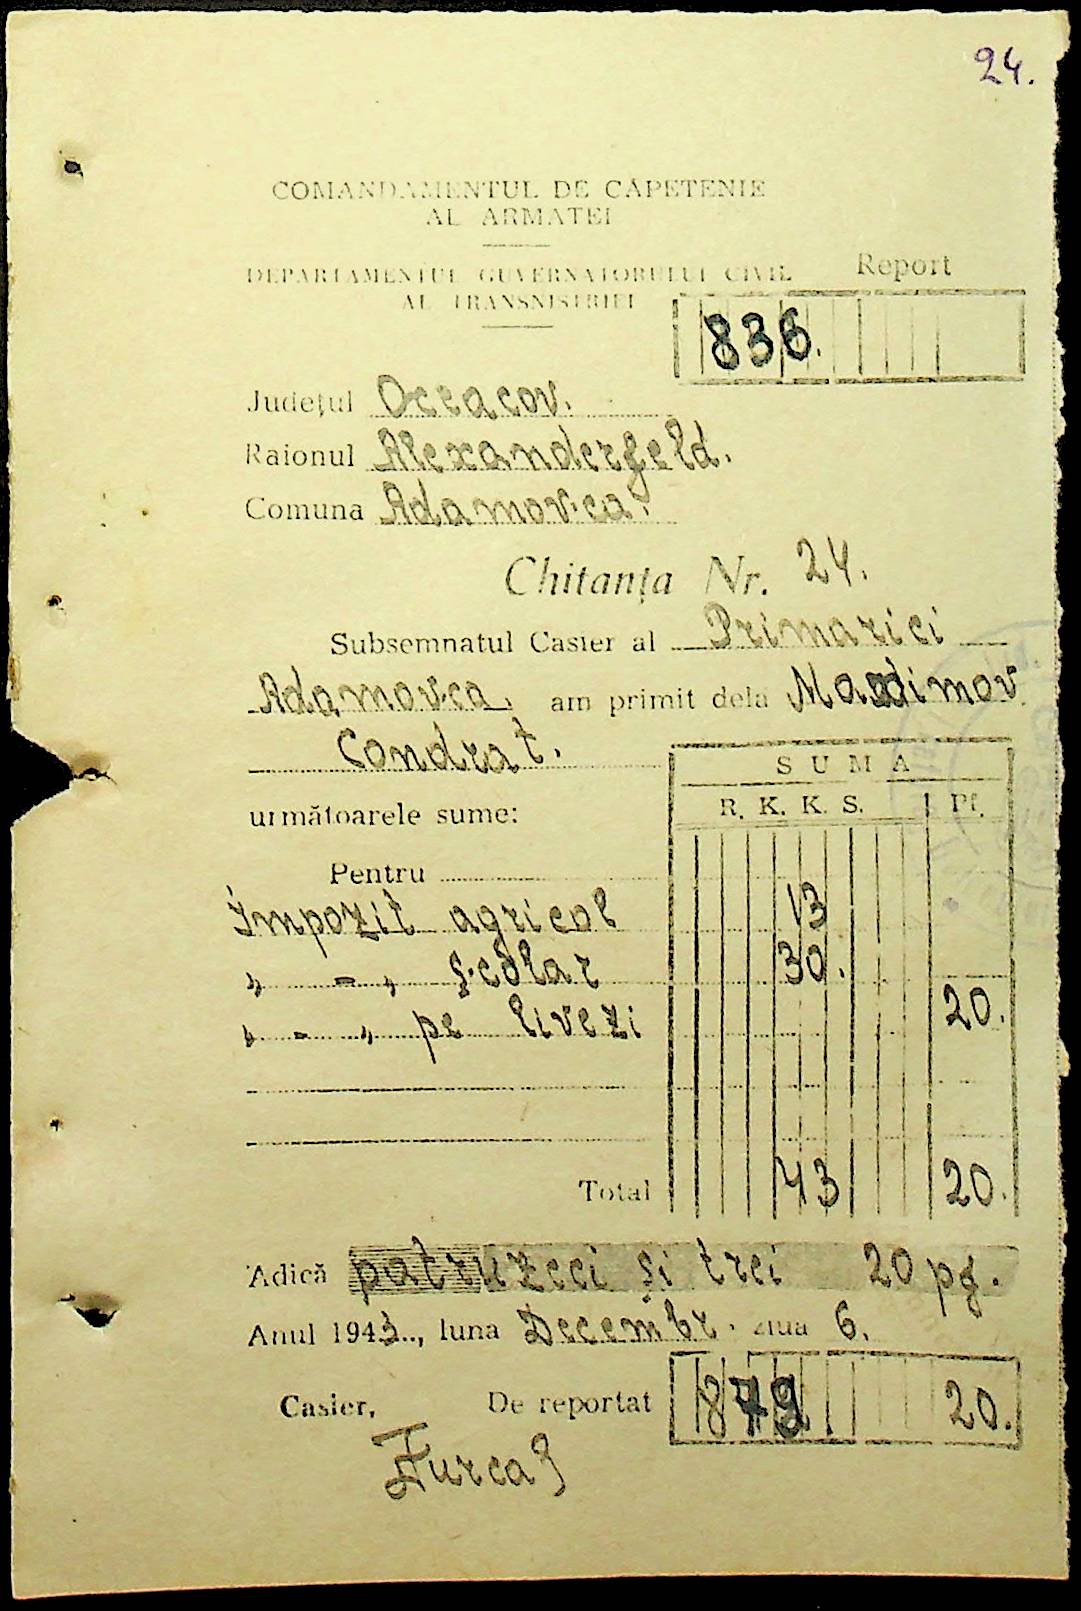 24.
COMANDAMENTUL DE CĂPETENIE
AL ARMATEI
DEPARTAMENTUL GUVERNATORULUI CIVIL
AL TRANSNISTRIEI
Report
836.
Județul Oceacov.
Raionul Alexanderfeld.
Comuna Adamovca.
Chitanța Nr. 24.
Subsemnatul Casier al Primariei
Adamovca. am primit dela Maxdimov
Condrat.
SUMA
următoarele sume: R. K. K. S. Pf.
Pentru
Impozit agricol 13
„ - „ școlar 30.
„ - „ pe livezi 20.
Total 43 20.
Adică patruzeci și trei 20 pf.
Anul 1943., luna Decembr. ziua 6.
Casier, De reportat 879 20.